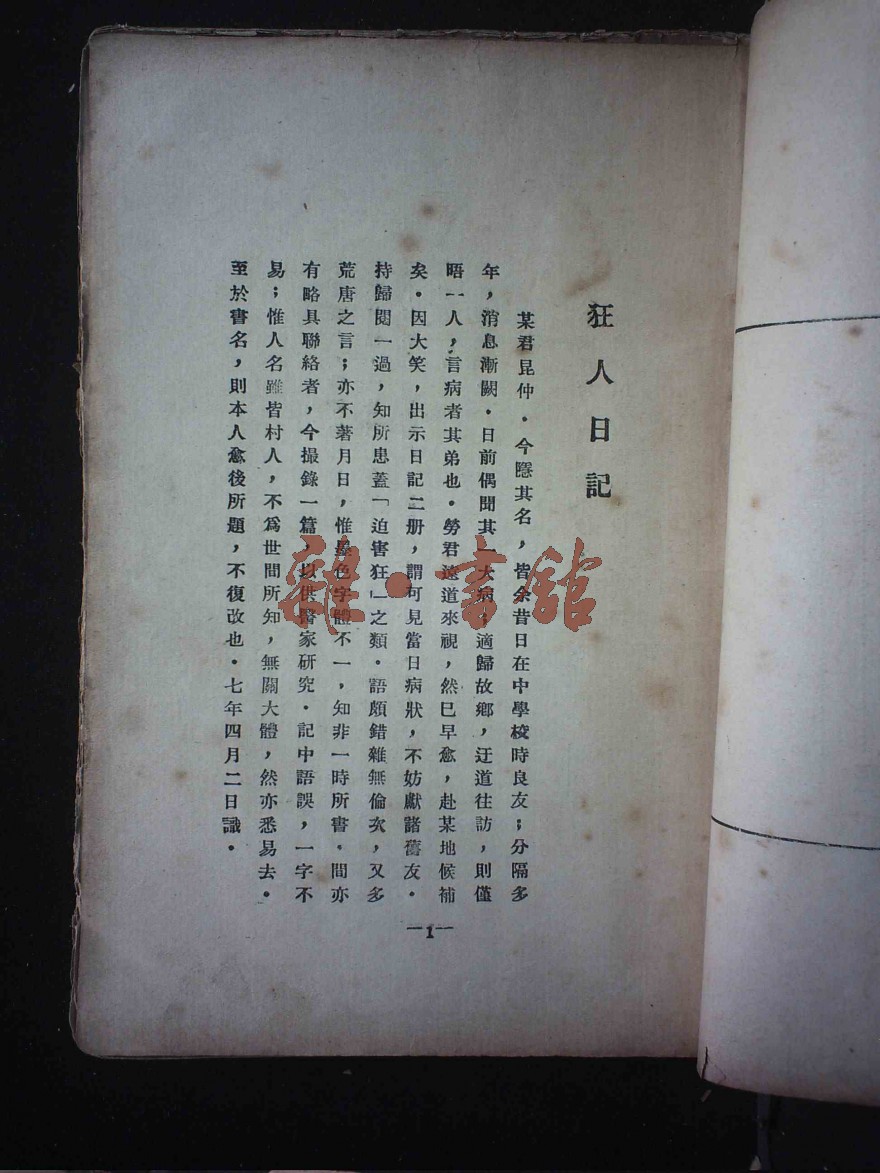 狂人日記
某君昆仲・今隱其名，皆余昔日在中學校時良友；分隔多
年，消息漸闕・日前偶聞其一大病；適歸故鄉，迂道往訪，則僅
晤一人，言病者其弟也・勞君遠道來視，然已早愈，赴某地候補
矣・因大笑，出示日記二册，謂可見當日病狀，不妨獻諸舊友・
持歸閱一過，知所患蓋「迫害狂」之類・語頗錯雜無倫次，又多
荒唐之言；亦不著月日，惟墨色字體不一，知非一時所書・間亦
有略具聯絡者，今撮錄一篇，以供醫家研究・記中語誤，一字不
易；惟人名雖皆村人，不爲世間所知，無關大體，然亦悉易去・
至於書名，則本人愈後所題，不復改也・七年四月二日識・
—1—
雜・書館